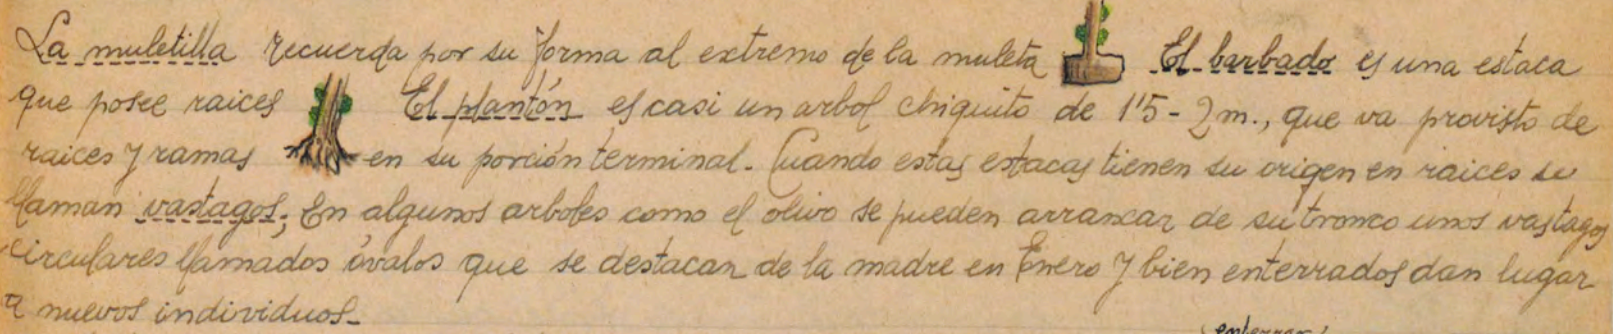 La muletilla recuerda por su forma al extremo de la muleta El barbado es una estaca
que posee raices El plantón es casi un arbol chiquito de 1'5-2 m., que va provisto de
raices y ramas en su porción terminal. Cuando estas estacas tienen su origen en raices se
llaman vastagos; En algunos arboles como el olivo se pueden arrancar de su tronco unos vastagos
circulares llamados óvalos que se destacan de la madre en Enero y bien enterrados dan lugar
a nuevos individuos.
enterrar